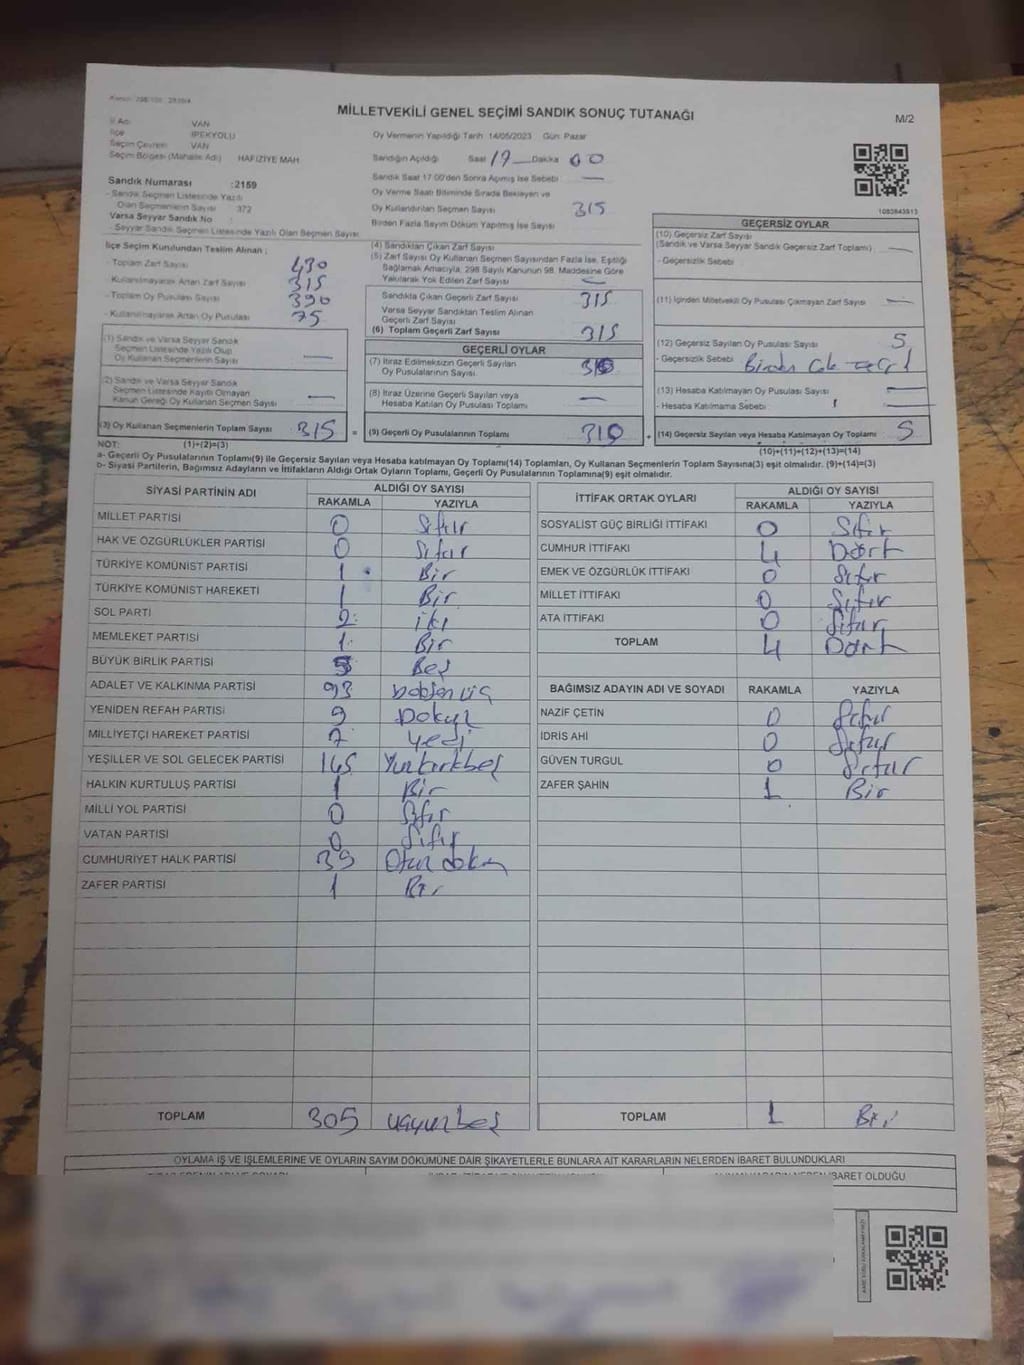 MİLLETVEKİLİ GENEL SEÇİMİ SANDIK SONUÇ TUTANAĞI
M/2
İl Adı VAN
İlçe İPEKYOLU
Seçim Çevresi VAN
Seçim Bölgesi (Mahalle Adı) HAFIZİYE MAH
Sandık Numarası :2159
- Sandık Seçmen Listesinde Yazılı
Olan Seçmenlerin Sayısı : 372
Varsa Seyyar Sandık No :
- Seyyar Sandık Seçmen Listesinde Yazılı Olan Seçmen Sayısı
Oy Vermenin Yapıldığı Tarih 14/05/2023 Gün: Pazar
Sandığın Açıldığı Saat 17 Dakika 00
Sandık Saat 17:00'den Sonra Açılmış İse Sebebi —
Oy Verme Saati Bitiminde Sırada Bekleyen ve
Oy Kullandırılan Seçmen Sayısı 315
Birden Fazla Sayım Döküm Yapılmış İse Sayısı
1083843913
İlçe Seçim Kurulundan Teslim Alınan ;
- Toplam Zarf Sayısı 430
- Kullanılmayarak Artan Zarf Sayısı 315
- Toplam Oy Pusulası Sayısı 390
- Kullanılmayarak Artan Oy Pusulası 75
(1) Sandık ve Varsa Seyyar Sandık
Seçmen Listesinde Yazılı Olup
Oy Kullanan Seçmenlerin Sayısı —
(2) Sandık ve Varsa Seyyar Sandık
Seçmen Listesinde Kayıtlı Olmayan
Kanun Gereği Oy Kullanan Seçmen Sayısı —
(3) Oy Kullanan Seçmenlerin Toplam Sayısı 315 =
(4) Sandıktan Çıkan Zarf Sayısı
(5) Zarf Sayısı Oy Kullanan Seçmen Sayısından Fazla İse, Eşitliği
Sağlamak Amacıyla, 298 Sayılı Kanunun 98. Maddesine Göre
Yakılarak Yok Edilen Zarf Sayısı —
Sandıkta Çıkan Geçerli Zarf Sayısı 315
Varsa Seyyar Sandıktan Teslim Alınan
Geçerli Zarf Sayısı
(6) Toplam Geçerli Zarf Sayısı 315
GEÇERLİ OYLAR
(7) İtiraz Edilmeksizin Geçerli Sayılan
Oy Pusulalarının Sayısı 310
(8) İtiraz Üzerine Geçerli Sayılan veya
Hesaba Katılan Oy Pusulası Toplamı —
(9) Geçerli Oy Pusulalarının Toplamı 310 +
GEÇERSİZ OYLAR
(10) Geçersiz Zarf Sayısı
(Sandık ve Varsa Seyyar Sandık Geçersiz Zarf Toplamı) —
- Geçersizlik Sebebi
(11) İçinden Milletvekili Oy Pusulası Çıkmayan Zarf Sayısı —
(12) Geçersiz Sayılan Oy Pusulası Sayısı 5
- Geçersizlik Sebebi
(13) Hesaba Katılmayan Oy Pusulası Sayısı —
- Hesaba Katılmama Sebebi —
(14) Geçersiz Sayılan veya Hesaba Katılmayan Oy Toplamı 5
NOT: (1)+(2)=(3) (10)+(11)+(12)+(13)=(14)
a- Geçerli Oy Pusulalarının Toplamı(9) ile Geçersiz Sayılan veya Hesaba katılmayan Oy Toplamı(14) Toplamları, Oy Kullanan Seçmenlerin Toplam Sayısına(3) eşit olmalıdır. (9)+(14)=(3)
b- Siyasi Partilerin, Bağımsız Adayların ve İttifakların Aldığı Ortak Oyların Toplamı, Geçerli Oy Pusulalarının Toplamına(9) eşit olmalıdır.
SİYASİ PARTİNİN ADI ALDIĞI OY SAYISI
RAKAMLA YAZIYLA
MİLLET PARTİSİ 0 Sıfır
HAK VE ÖZGÜRLÜKLER PARTİSİ 0 Sıfır
TÜRKİYE KOMÜNİST PARTİSİ 1 Bir
TÜRKİYE KOMÜNİST HAREKETİ 1 Bir
SOL PARTİ 2 iki
MEMLEKET PARTİSİ 1 Bir
BÜYÜK BİRLİK PARTİSİ 5 Beş
ADALET VE KALKINMA PARTİSİ 93
YENİDEN REFAH PARTİSİ 9 Dokuz
MİLLİYETÇİ HAREKET PARTİSİ 7 yedi
YEŞİLLER VE SOL GELECEK PARTİSİ 145 Yüzkırkbeş
HALKIN KURTULUŞ PARTİSİ 1 Bir
MİLLİ YOL PARTİSİ 0 Sıfır
VATAN PARTİSİ 0 Sıfır
CUMHURİYET HALK PARTİSİ 39 Otuz dokuz
ZAFER PARTİSİ 1 Bir
TOPLAM 305 üçyüzbeş
İTTİFAK ORTAK OYLARI ALDIĞI OY SAYISI
RAKAMLA YAZIYLA
SOSYALİST GÜÇ BİRLİĞİ İTTİFAKI 0 Sıfır
CUMHUR İTTİFAKI 4 Dört
EMEK VE ÖZGÜRLÜK İTTİFAKI 0 Sıfır
MİLLET İTTİFAKI 0 Sıfır
ATA İTTİFAKI 0 Sıfır
TOPLAM 4 Dört
BAĞIMSIZ ADAYIN ADI VE SOYADI RAKAMLA YAZIYLA
NAZİF ÇETİN 0 Sıfır
İDRİS AHİ 0 Sıfır
GÜVEN TURGUL 0 Sıfır
ZAFER ŞAHİN 1 Bir
TOPLAM 1 Bir
OYLAMA İŞ VE İŞLEMLERİNE VE OYLARIN SAYIM DÖKÜMÜNE DAİR ŞİKAYETLERLE BUNLARA AİT KARARLARIN NELERDEN İBARET BULUNDUKLARI
İBARET OLDUĞU